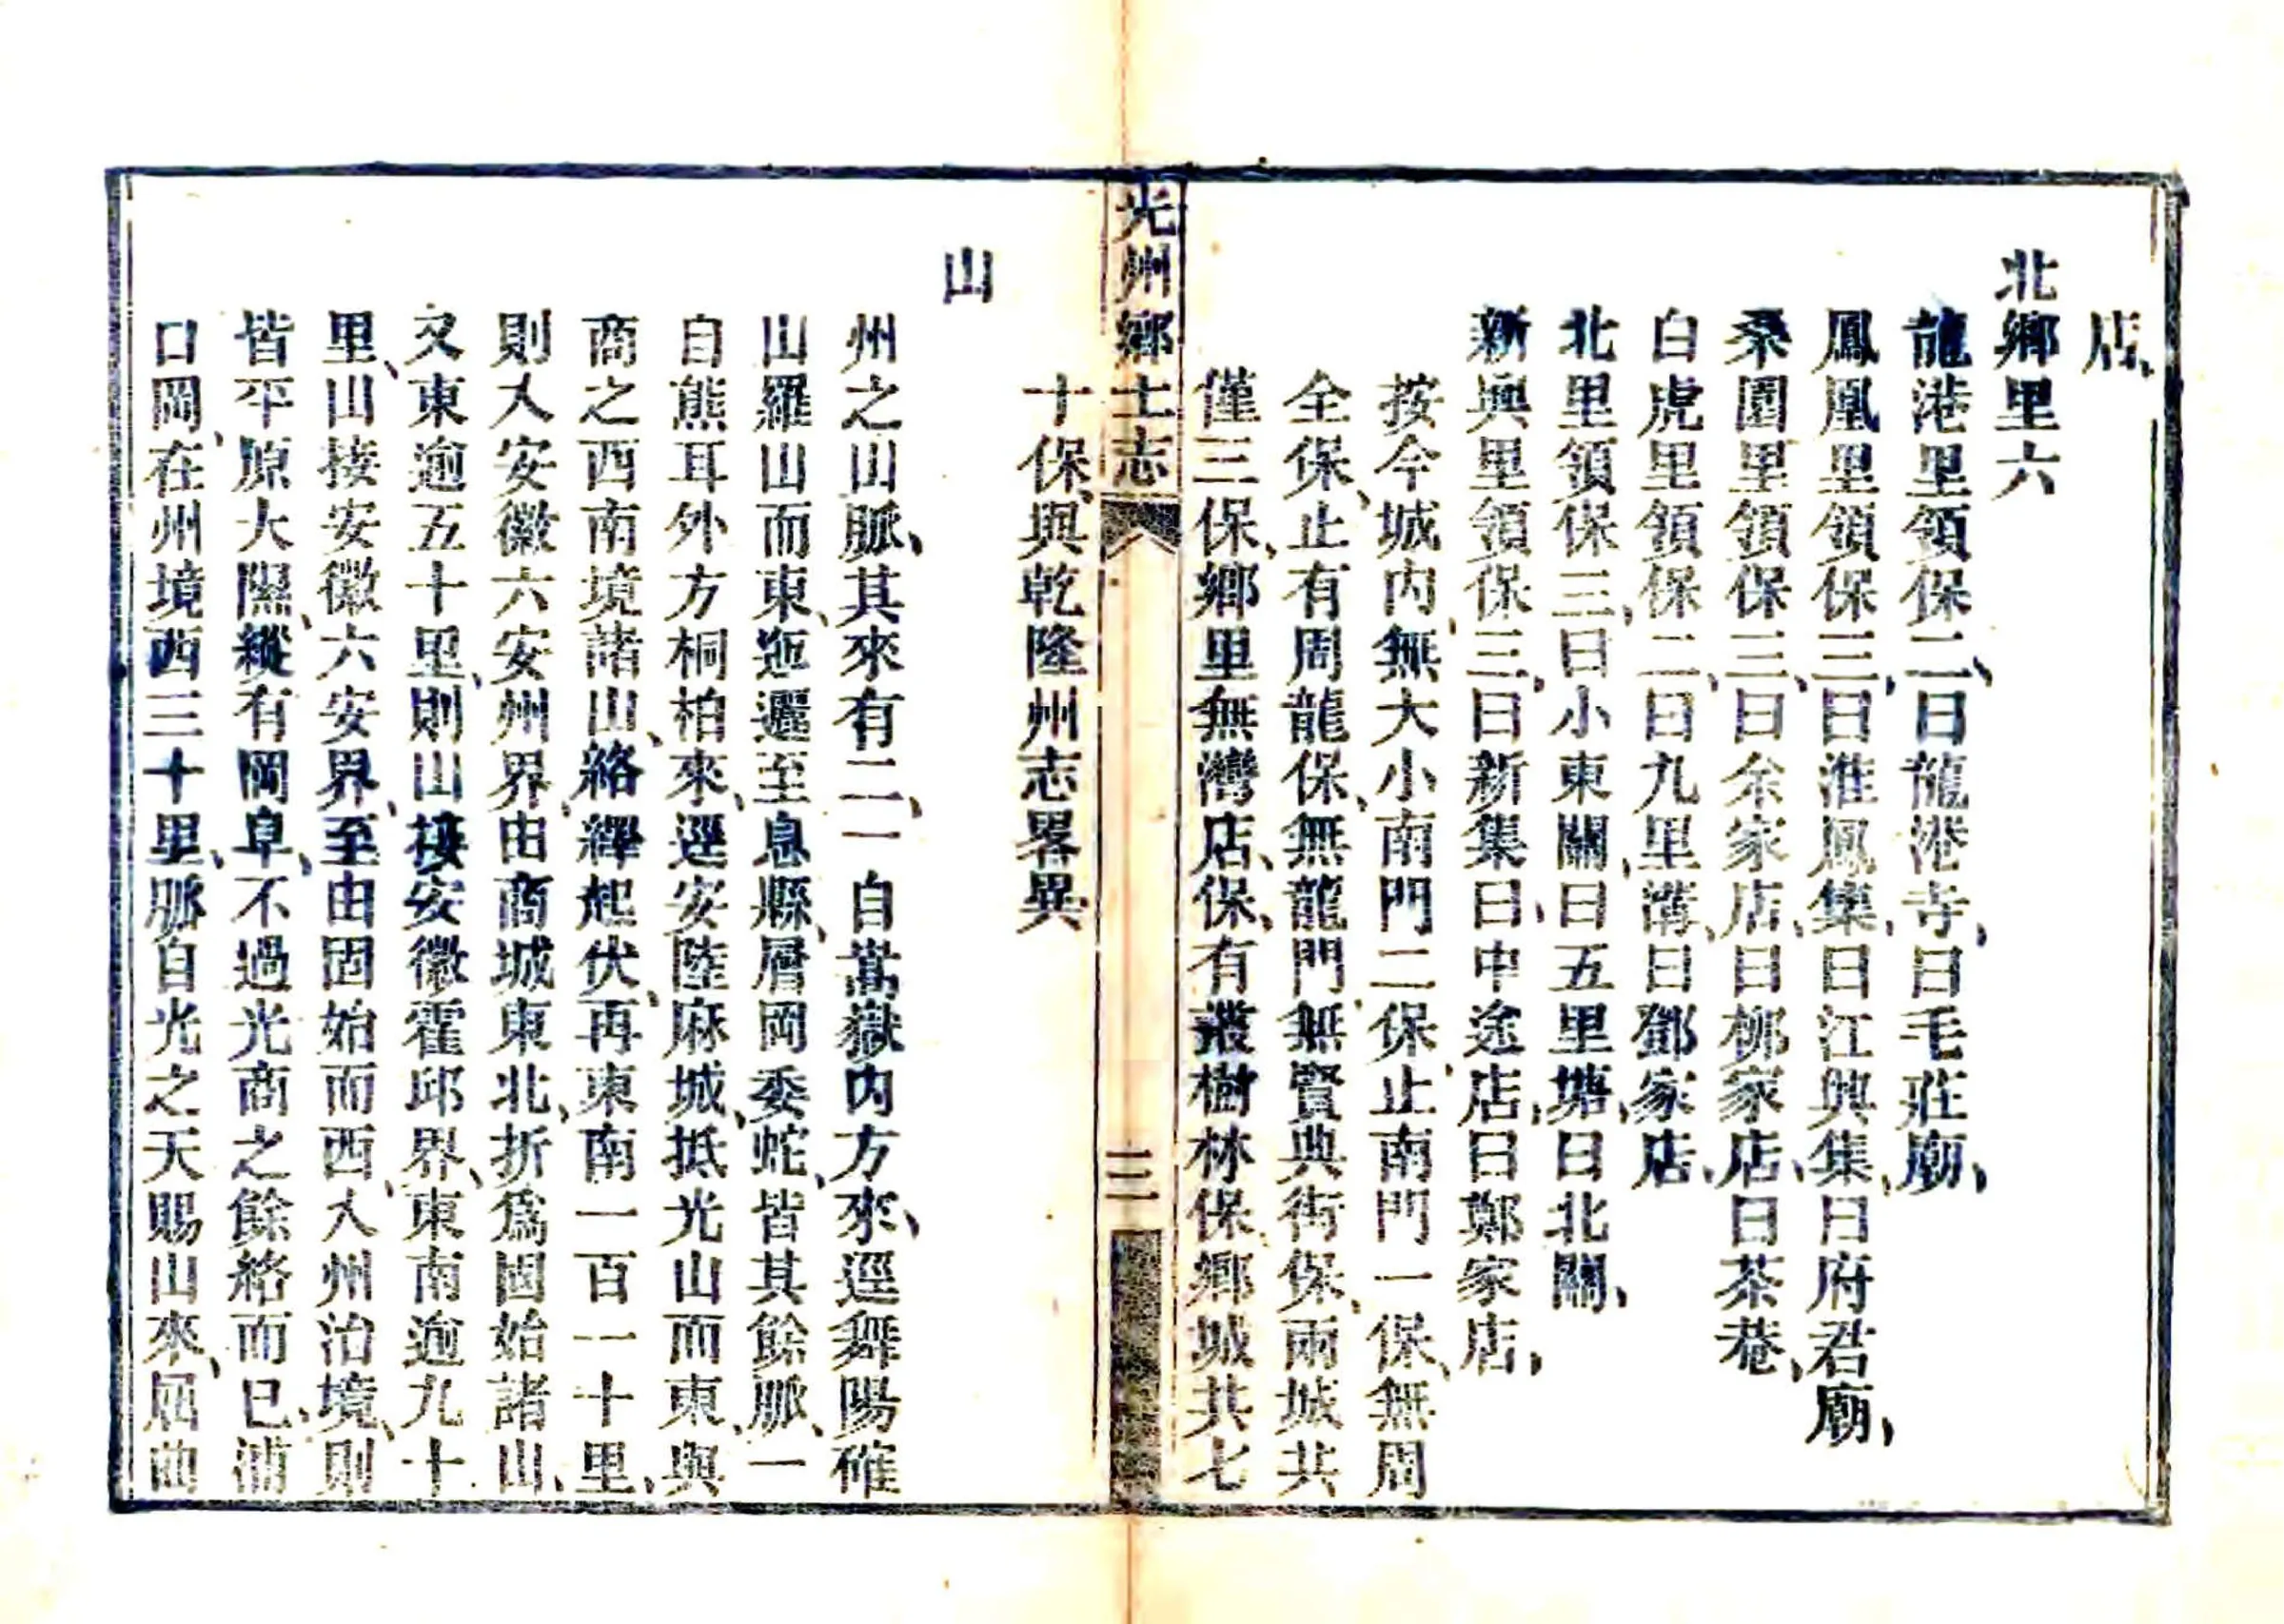 店、
北鄉里六
龍港里領保二、曰龍港寺、曰毛莊廟、
鳳凰里領保三、曰淮鳳集、曰江興集、曰府君廟、
桑園里領保三、曰余家店、曰柳家店、曰茶菴、
白虎里領保二、曰九里溝、曰鄧家店、
北里領保三、曰小東關、曰五里塘、曰北關、
新興里領保三、曰新集、曰中途店、曰鄭家店、
按今城內、無大小南門二保、止南門一保、無周
全保、止有周龍保、無龍門、無賢典街保、兩城共
僅三保、鄉里無灣店保、有叢樹林保、鄉城共七
光州鄉土志
三
十保、與乾隆州志畧異
山
州之山脈、其來有二、一自嵩嶽內方來、逕舞陽確
山羅山而東、迤邐至息縣、層岡委蛇、皆其餘脈、一
自熊耳外方桐柏來、逕安陸麻城、抵光山而東、與
商之西南境諸山、絡繹起伏、再東南一百一十里、
則入安徽六安州界、由商城東北、折爲固始諸山、
又東逾五十里、則山接安徽霍邱界、東南逾九十
里、山接安徽六安界、至由固始而西、入州治境、則
皆平原大隰、縱有岡阜、不過光商之餘絡而已、浦
口岡、在州境西三十里、脈自光之天賜山來、屈曲